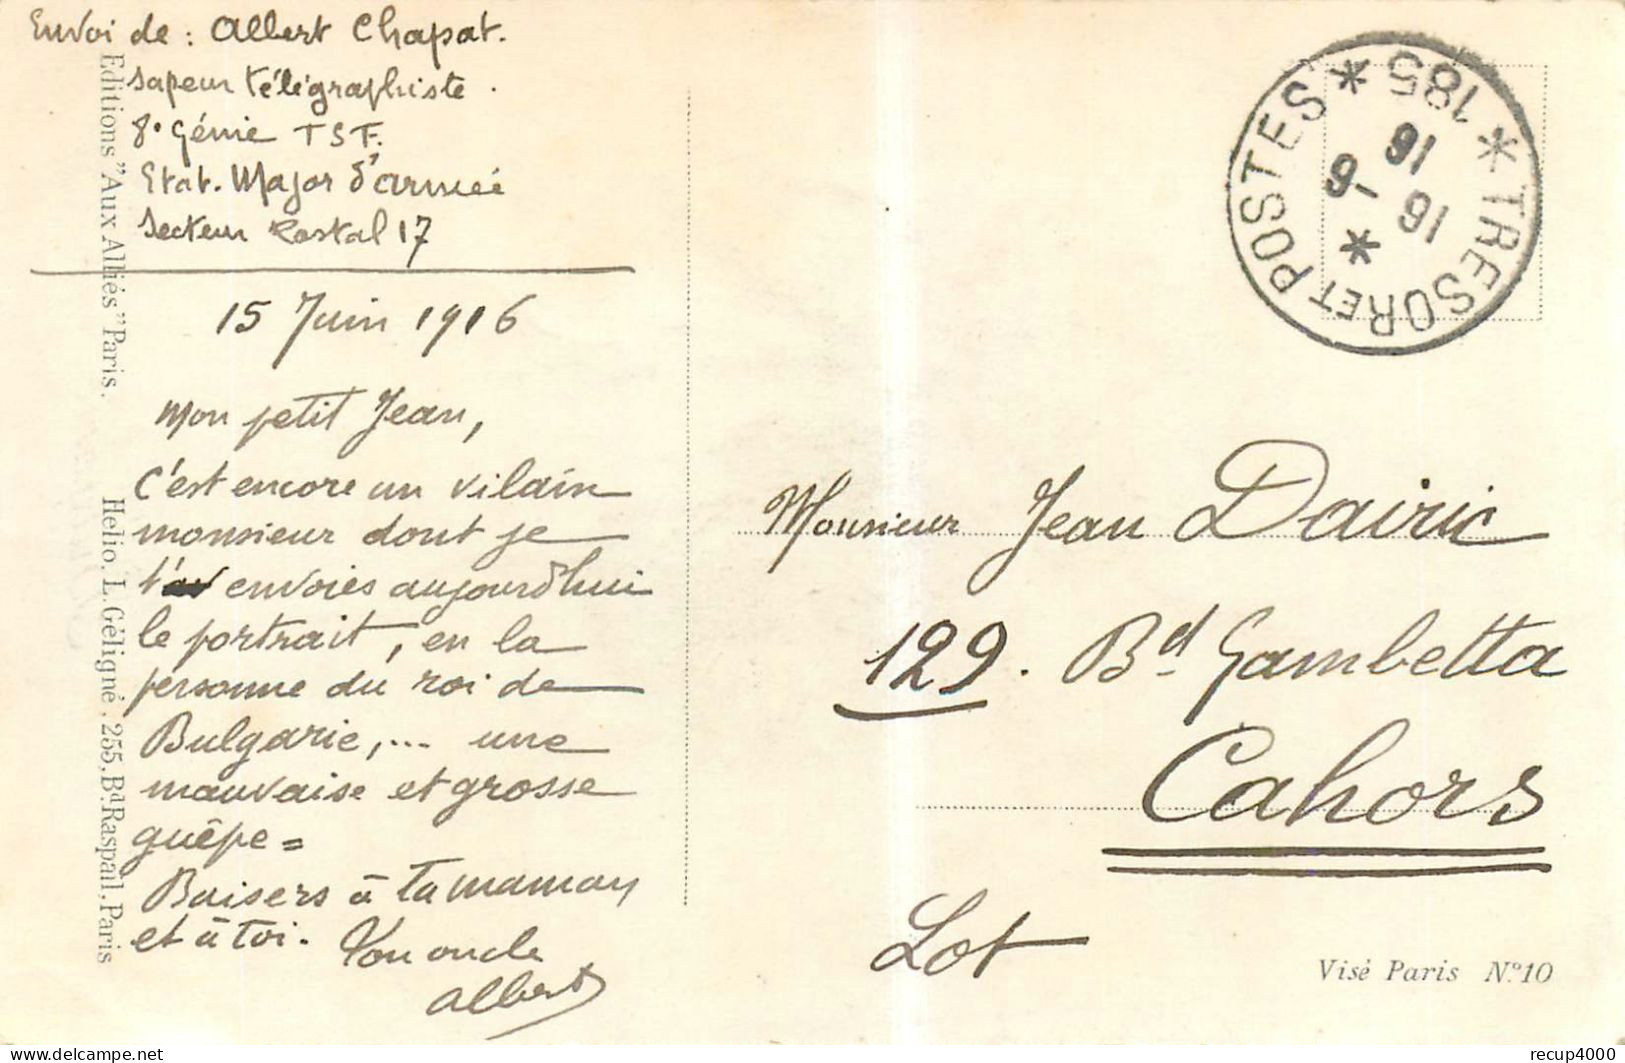 Envoi de : Albert Chapat.
Sapeur télégraphiste.
8e Génie TSF.
Etat-Major d'armée
Secteur Postal 17
15 Juin 1916
Mon petit Jean,
c'est encore un vilain
monsieur dont je
t' envoies aujourd'hui
le portrait, en la
personne du roi de
Bulgarie,... une
mauvaise et grosse
guêpe =
Baisers à ta maman
et à toi. Ton oncle
Albert
Editions "Aux Alliés" Paris.
Helio. L. Géligné. 255, Bd. Raspail, Paris
* TRESOR ET POSTES * 185
16
16 -6
*
Monsieur Jean Dairic
129. Bd Gambetta
Cahors
Lot
Visé Paris N.º 10
recup4000
www.delcampe.net